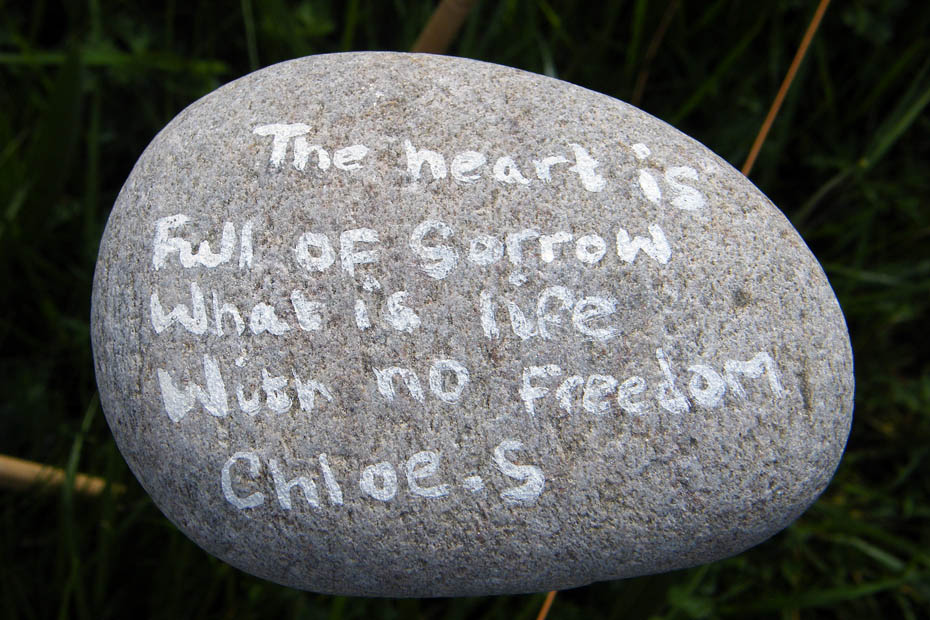 The heart is
Full of Sorrow
What is life
With no freedom
Chloe.S